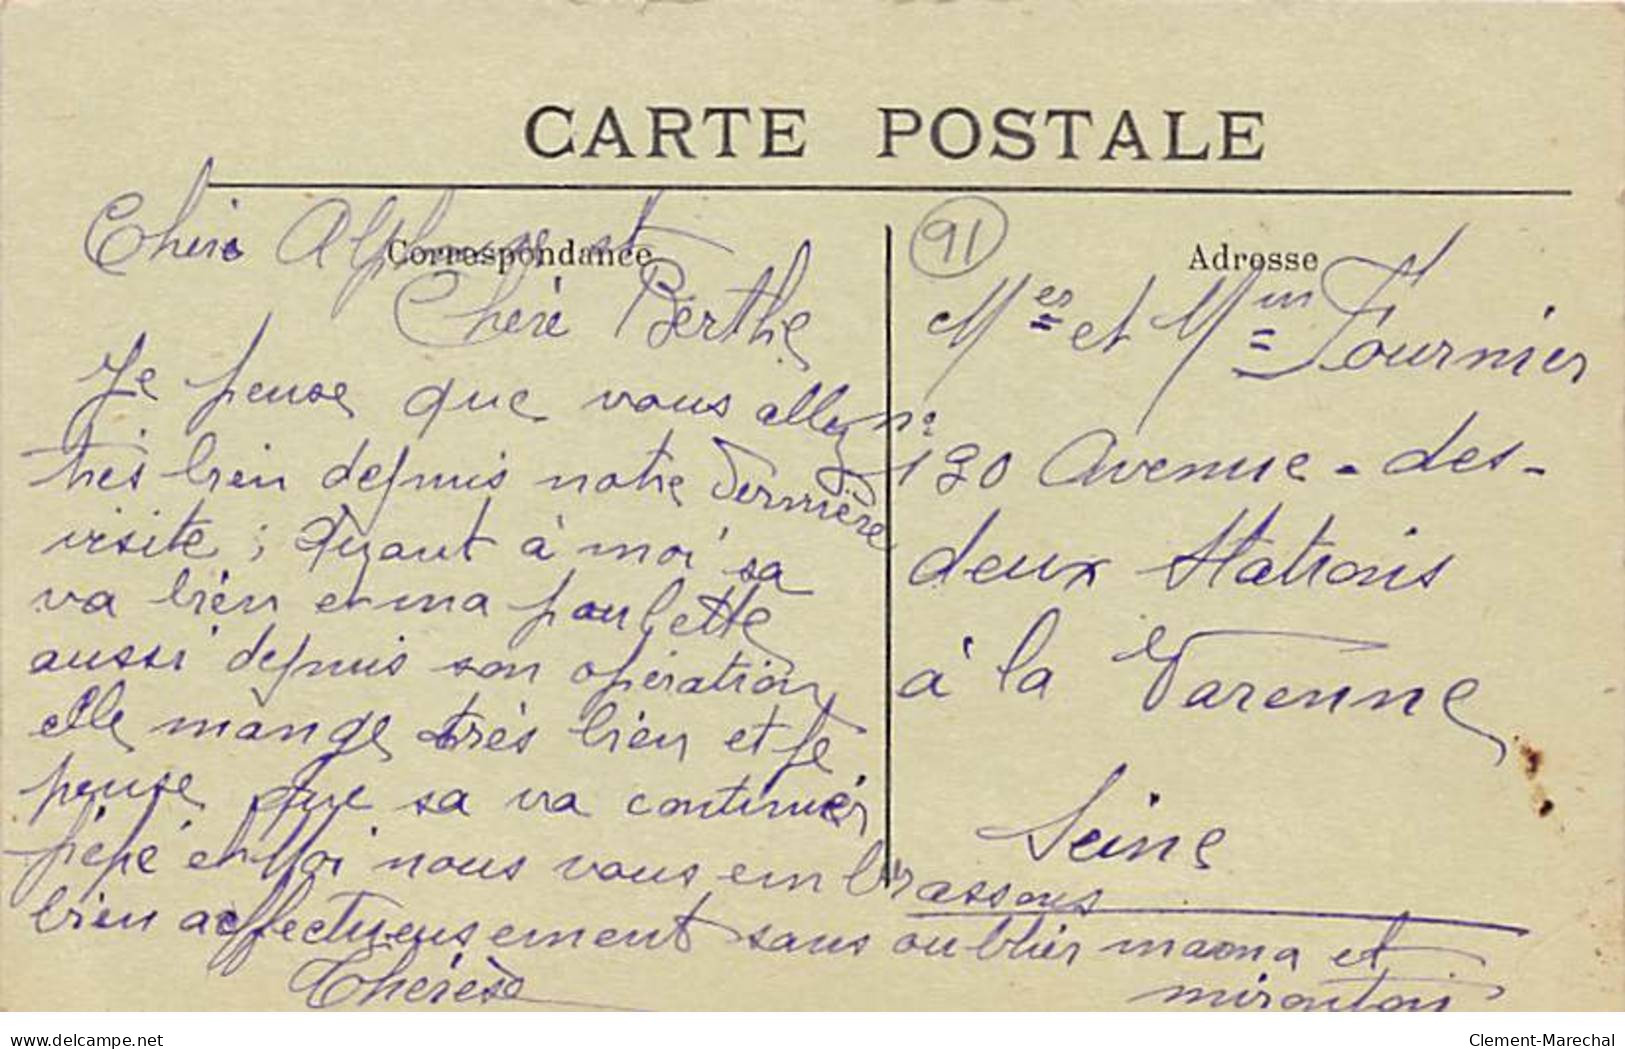 CARTE POSTALE
Correspondance
Chéri Alphonse et
Chéré Berthe
Je pense que vous allez
très bien depuis notre dernnière
visite ; Quant à moi sa
va bién et ma paulette
aussi depuis son opération
elle mange très bién et je
pense que sa va continuér
pépé et moi nous vous embrassons
bien affectueusement sans oublier mama et
mirontoi
Thérèse
91
Adresse
Mer et Mm Fournier
no
130 Avenue-des-
deux Stations
à la Varenne
Seine
delcampe.net
Clement-Marechal